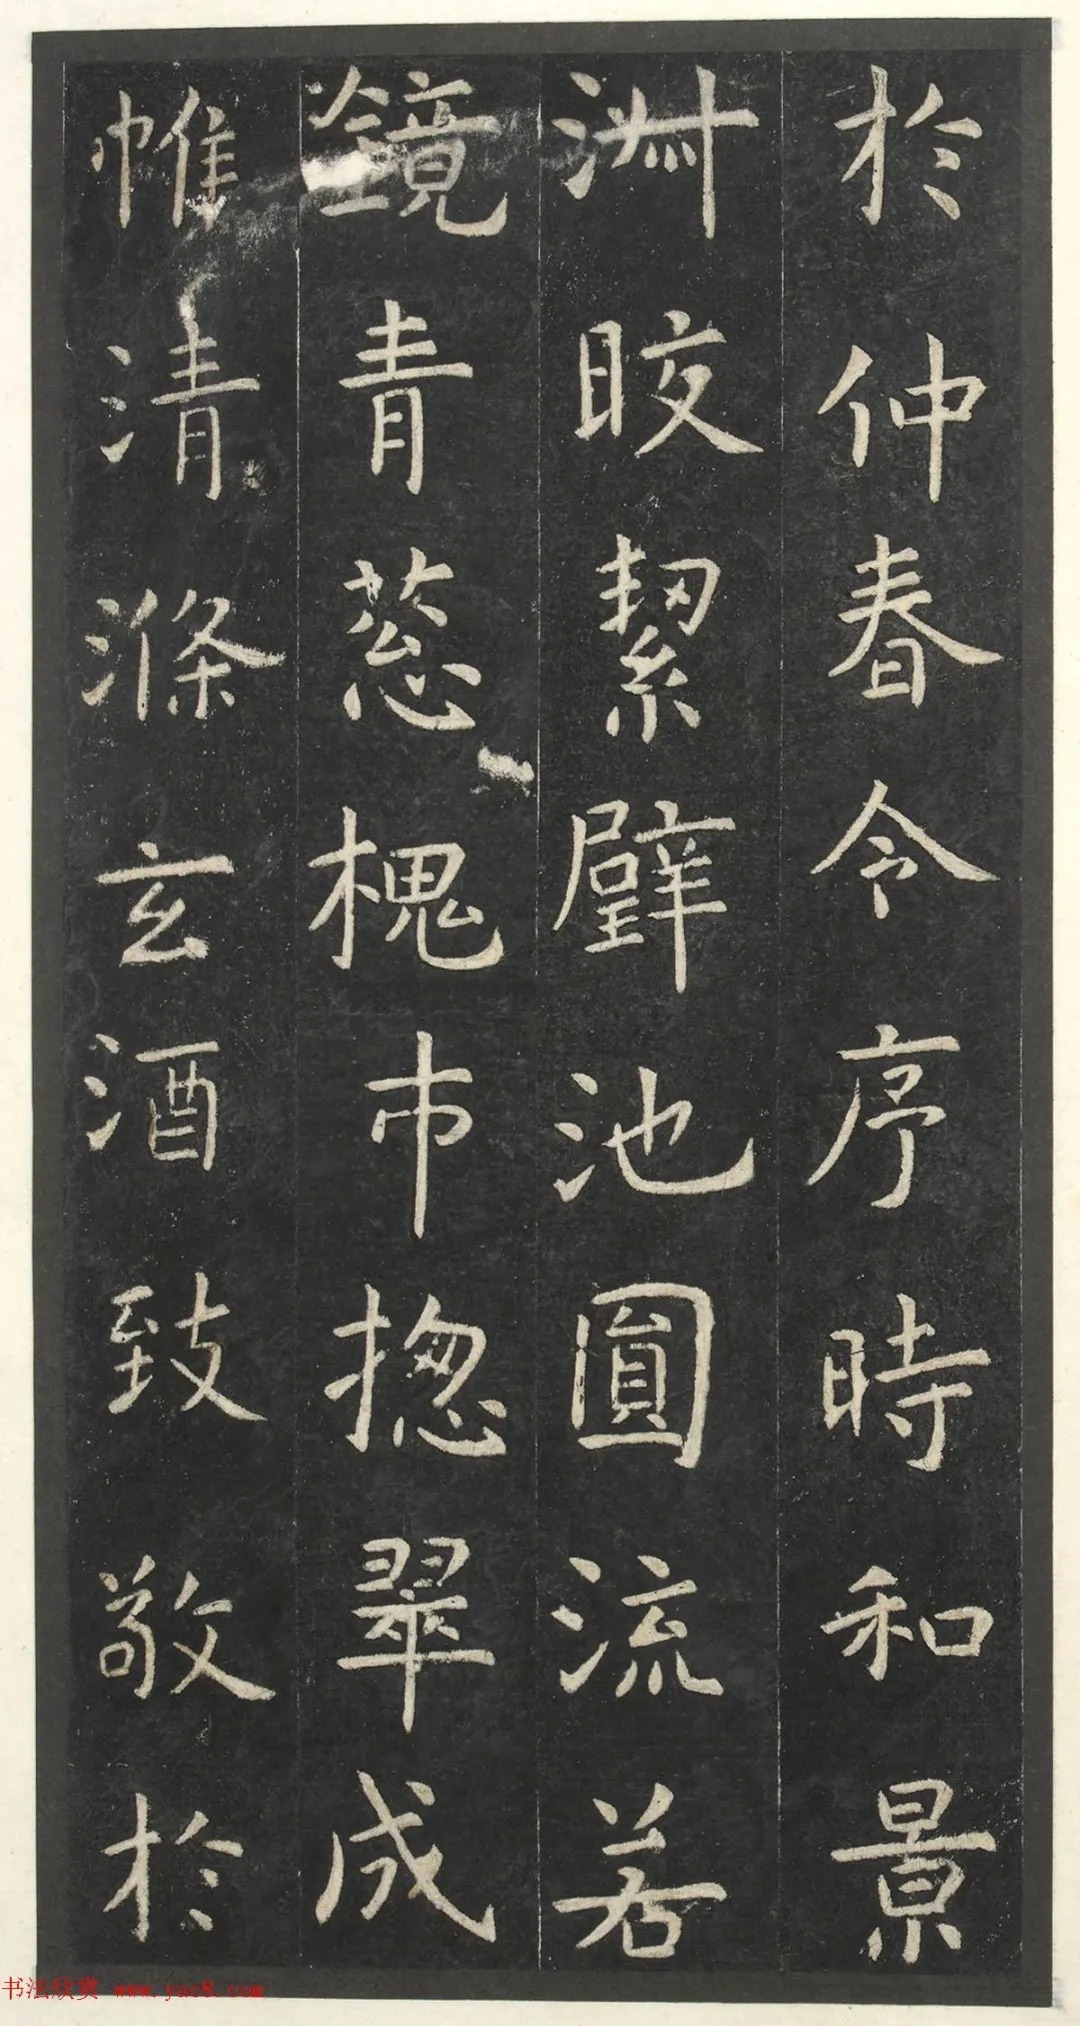 於仲春令序時和景
淋皎絜璧池圓流若
鏡青葱槐市揔翠成
帷清滌玄酒致敬於
书法欣赏 www.yac8.com